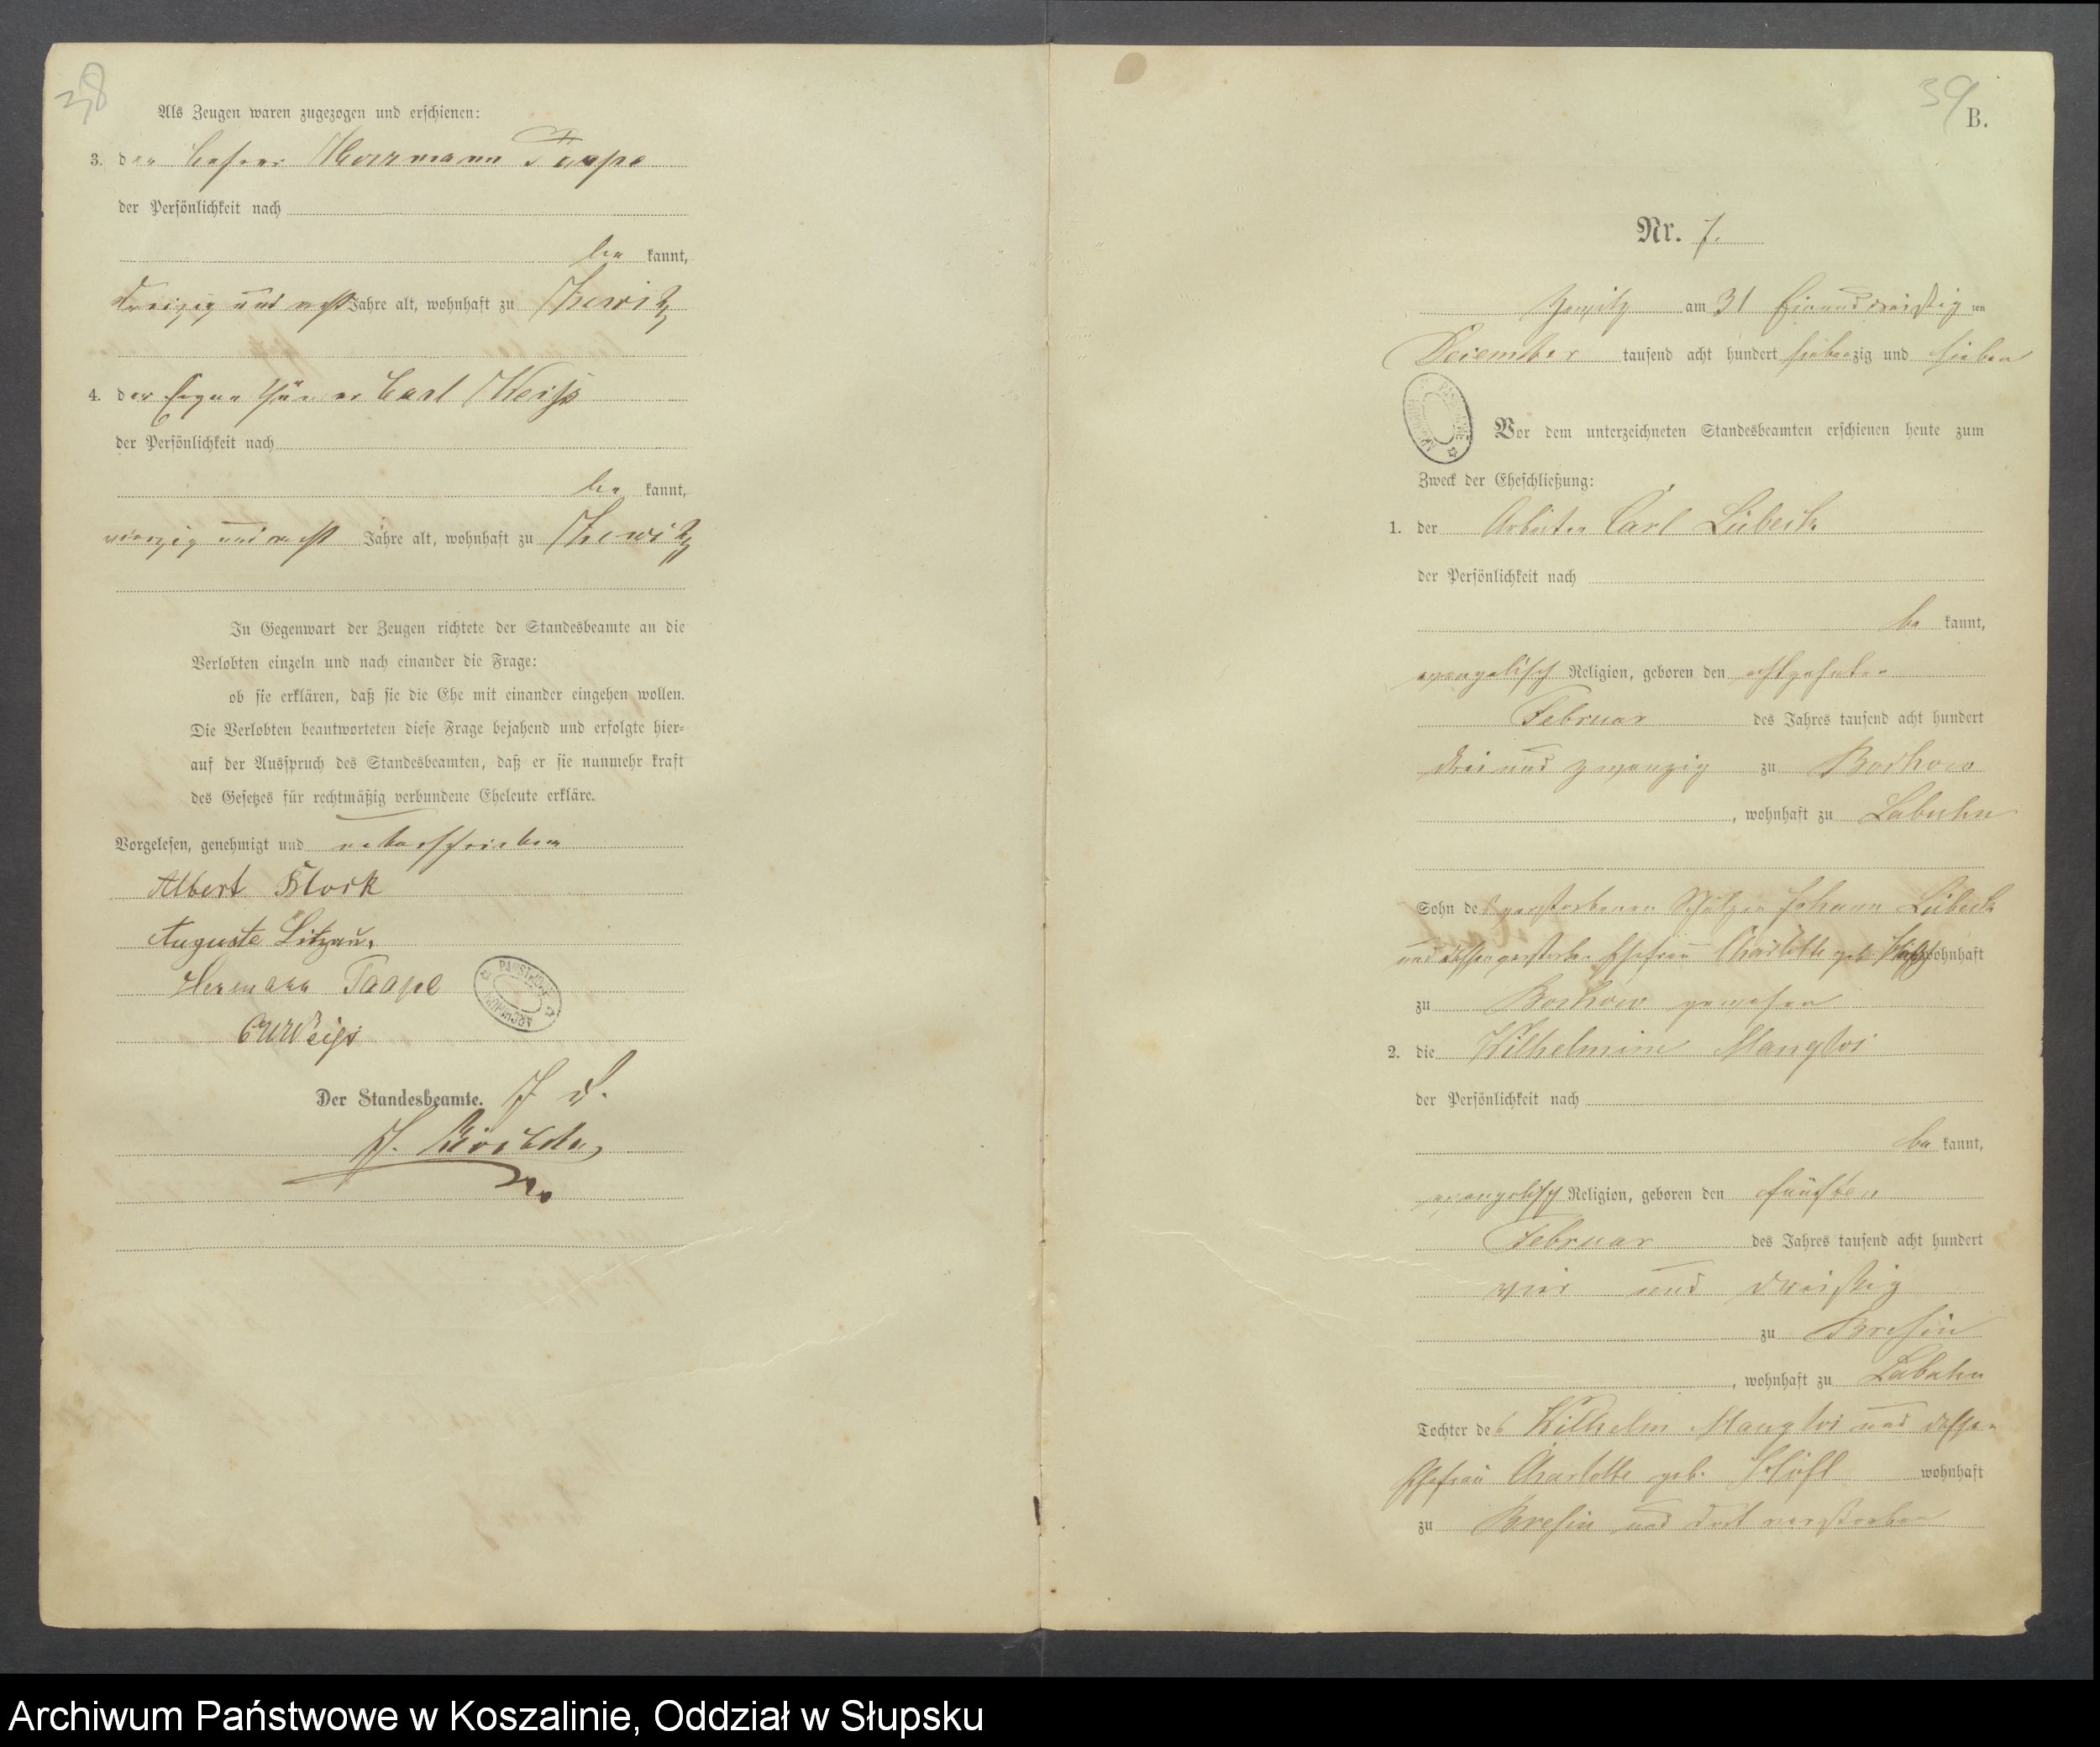 38
Als Zeugen waren zugezogen und erschienen:
3. der Herrmann Taape
der Persönlichkeit nach
be kannt,
dreizig und acht Jahre alt, wohnhaft zu Zewitz
4. der Eigenthümer Carl Weiß
der Persönlichkeit nach
be kannt,
vierzig und acht Jahre alt, wohnhaft zu Zewitz
In Gegenwart der Zeugen richtete der Standesbeamte an die
Verlobten einzeln und nach einander die Frage:
ob sie erklären, daß sie die Ehe mit einander eingehen wollen.
Die Verlobten beantworteten diese Frage bejahend und erfolgte hier=
auf der Ausspruch des Standesbeamten, daß er sie nunmehr kraft
des Gesetzes für rechtmäßig verbundene Eheleute erkläre.
Vorgelesen, genehmigt und unterschrieben
Albert Block
Auguste Litzau.
Hermann Taape
Weiß
Der Standesbeamte.
39
B.
Nr. 7.
Zewitz am 31 Einunddreisig ten
December tausend acht hundert siebenzig und sieben
Vor dem unterzeichneten Standesbeamten erschienen heute zum
Zweck der Eheschließung:
1. der Arbeiter Carl Lübeck
der Persönlichkeit nach
be kannt,
evangelisch Religion, geboren den achtzehnten
Februar des Jahres tausend acht hundert
drei und zwanzig zu Boschow
, wohnhaft zu Labuhn
Sohn des verstorbenen Johann Lübeck
und dessen verstorben Ehefrau Charlotte geb. wohnhaft
zu Boschow gewesen
2. die Wilhelmine Mangloi
der Persönlichkeit nach
be kannt,
evangelisch Religion, geboren den fünften
Februar des Jahres tausend acht hundert
vier und dreißig
zu Bresin
, wohnhaft zu Labuhn
Tochter des Wilhelm Mangloi und dessen
Ehefrau Charlotte geb. wohnhaft
zu Bresin und dort verstorben
Archiwum Państwowe w Koszalinie, Oddział w Słupsku